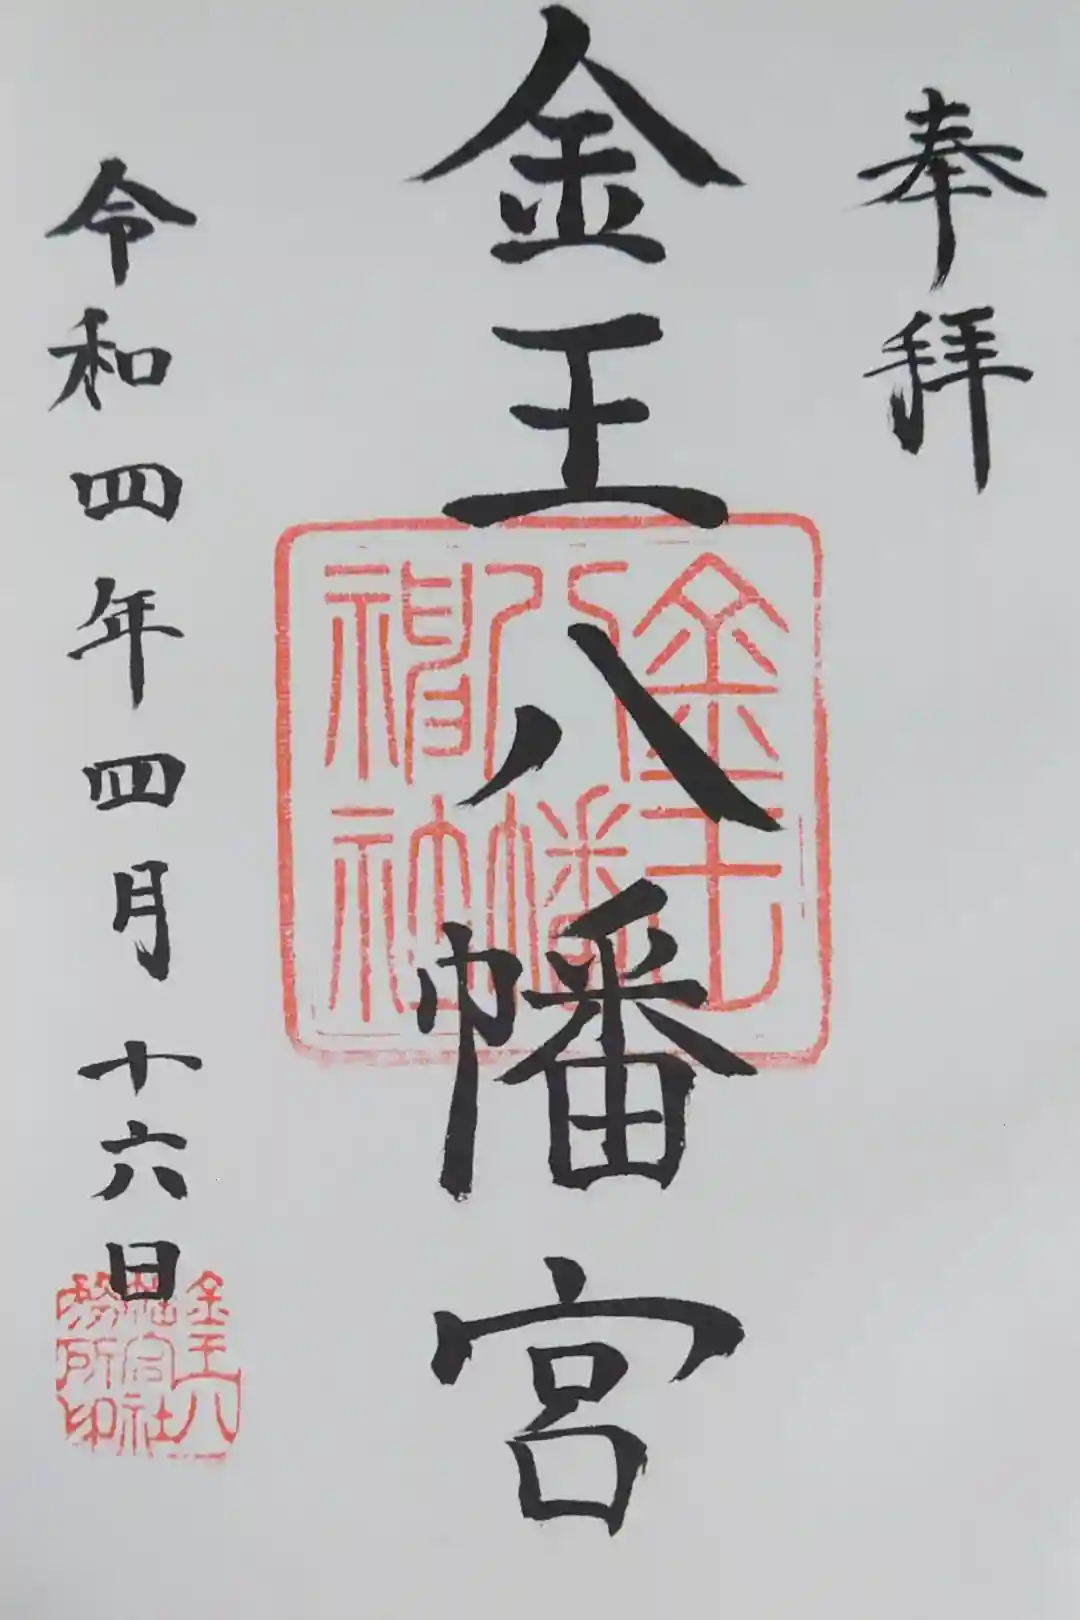 奉拝
金王八幡宮
金王
八幡
神社
令和四年四月十六日
金王八
幡宮社
務所印